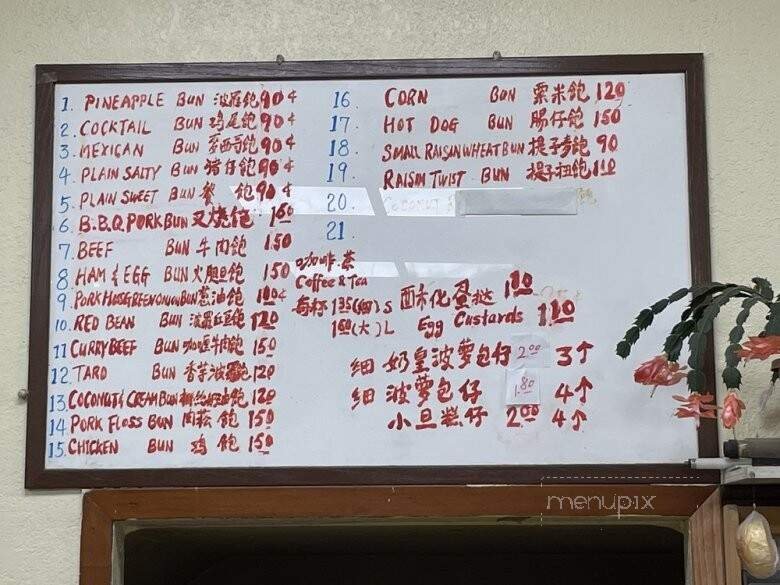 1. PINEAPPLE BUN 波罗飽 90¢
2. COCKTAIL BUN 鸡尾飽 90¢
3. MEXICAN BUN 墨西哥飽 90¢
4. PLAIN SALTY BUN 猪仔飽 90¢
5. PLAIN SWEET BUN 餐飽 90¢
6. B.B.Q PORK BUN 叉烧飽 1.60
7. BEEF BUN 牛肉飽 150
8. HAM & EGG BUN 火腿旦飽 150
9. PORK HOUSE GREEN ONION BUN 葱油飽
10. RED BEAN BUN 飽 120
11 CURRY BEEF BUN 咖喱牛肉飽 150
12. TARO BUN 香芋波羅飽 120
13. COCONUT & CREAM BUN 椰丝奶油飽 120
14. PORK FLOSS BUN 肉菘飽 150
15. CHICKEN BUN 鸡飽 150
16 CORN BUN 粟米飽 120
17. HOT DOG BUN 肠仔飽 150
18. SMALL RAISIN WHEAT BUN 提子麦飽 90
19. RAISIN TWIST BUN 提子扭飽 110
20. COCONUT
21.
咖啡.茶
Coffee & Tea
每杯 135(细) S
160(大) L
酥化蛋挞
Egg Custards 110
细 奶皇波萝包仔 2.00 3个
细 波萝包仔 1.80 4个
小旦糕仔 2.00 4个
menupix